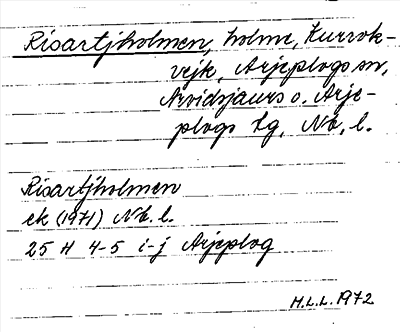 Risartjholmen, holme, Kurrok-
vejk, Arjeplogs sn,
Arvidsjaurs o. Arje-
plogs tg, Nb, l.
Risartjholmen
ek (1971) Nb. l.
25 H 4-5 i-j Arjeplog
H.L.L. 1972